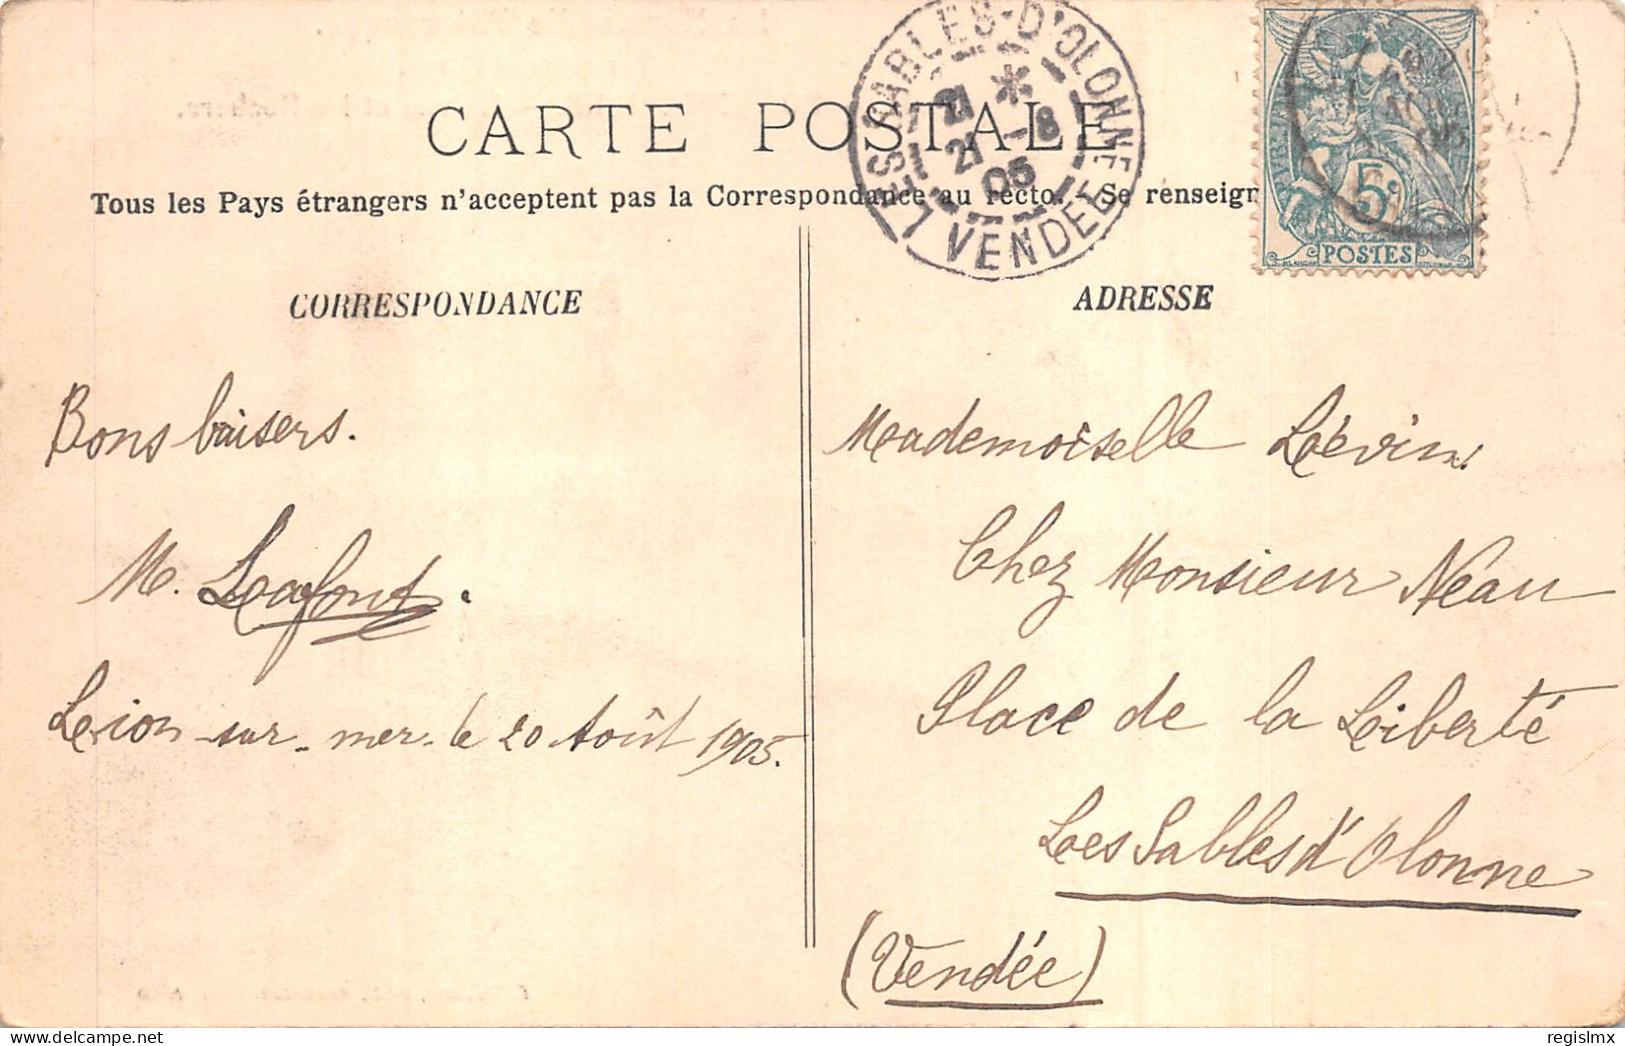 CARTE POSTALE
Tous les Pays étrangers n'acceptent pas la Correspondance au recto. - Se renseign
LES SABLES-D'OLONNE
21 *
21 -8
05
VENDÉE
5c
POSTES
CORRESPONDANCE
ADRESSE
Bons baisers.
M. Lafont.
Lion-sur-mer-le 20 Août 1905.
Mademoiselle Lévin
Chez Monsieur Néau
Place de la Liberté
Les Sables d'Olonne
(Vendée)
regislmx